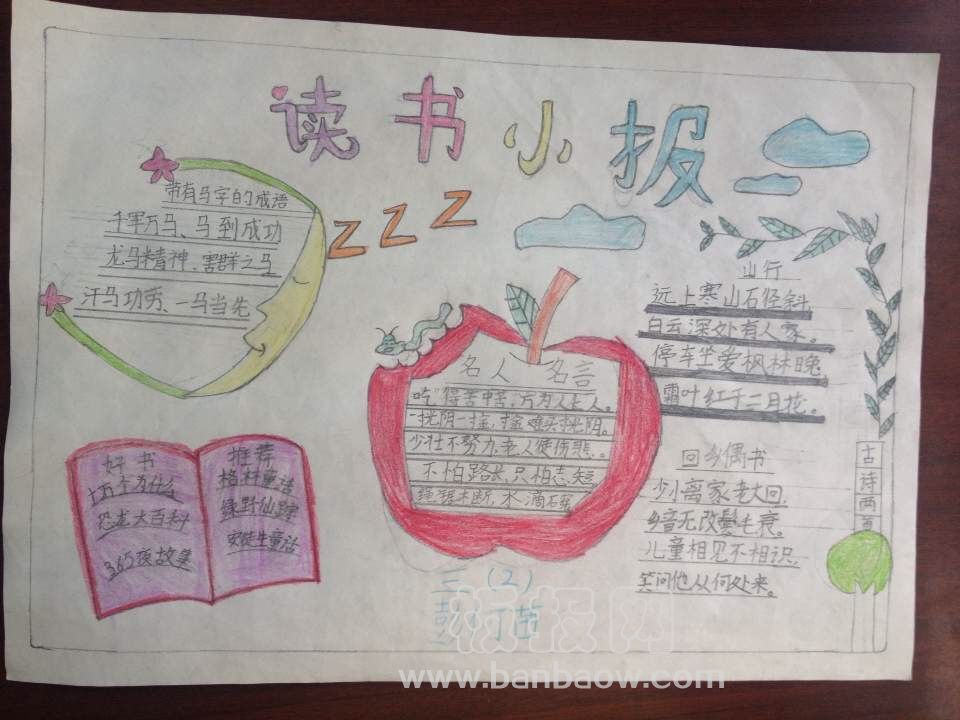 读书小报
带有马字的成语
千军万马、马到成功
龙马精神、害群之马
汗马功劳、一马当先
ZZZ
名人名言
吃得苦中苦,方为人上人。
一寸光阴一寸金,寸金难买寸光阴。
少壮不努力,老人使伤悲。
不怕路长,只怕志短
绳锯木断,水滴石穿
山行
远上寒山石径斜,
白云深处有人家。
停车坐爱枫林晚,
霜叶红于二月花。
回乡偶书
少小离家老大回,
乡音无改鬓毛衰。
儿童相见不相识,
笑问他从何处来。
古诗两首
好书
十万个为什么
恐龙大百科
365夜故事
推荐
格林童话
绿野仙踪
安徒生童话
三(2)
板报网
www.banbaow.com